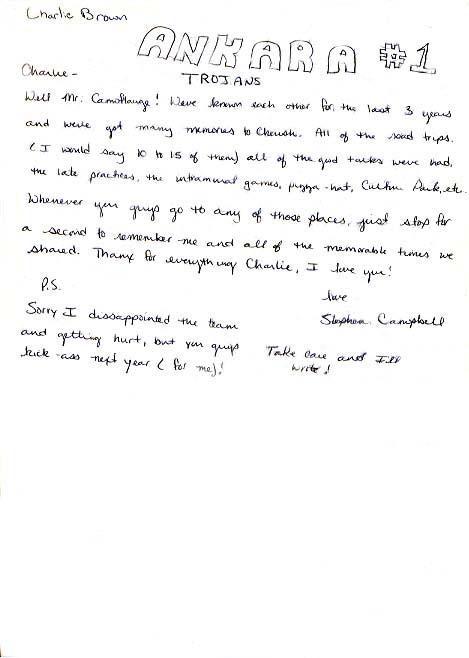 Charlie Brown
ANKARA #1
TROJANS
Charlie -
Well Mr. Camoflauge! Weve known each other for the last 3 years
and weve got many memories to cheush. All of the road trips.
(I would say 10 to 15 of them) all of the good talkes weve had,
the late practices, the intrammual games, pizza-hut, Cultur Park, etc.
Whenever you guys go to any of those places, just stop for
a second to remember me and all of the memorable times we
shared. Thanx for everything Charlie, I love you!
P.S.
love
Sorry I dissappointed the team
Stephen Campbell
and getting hurt, but you guys
kick-ass next year (for me)!
Take care and Ill
write!